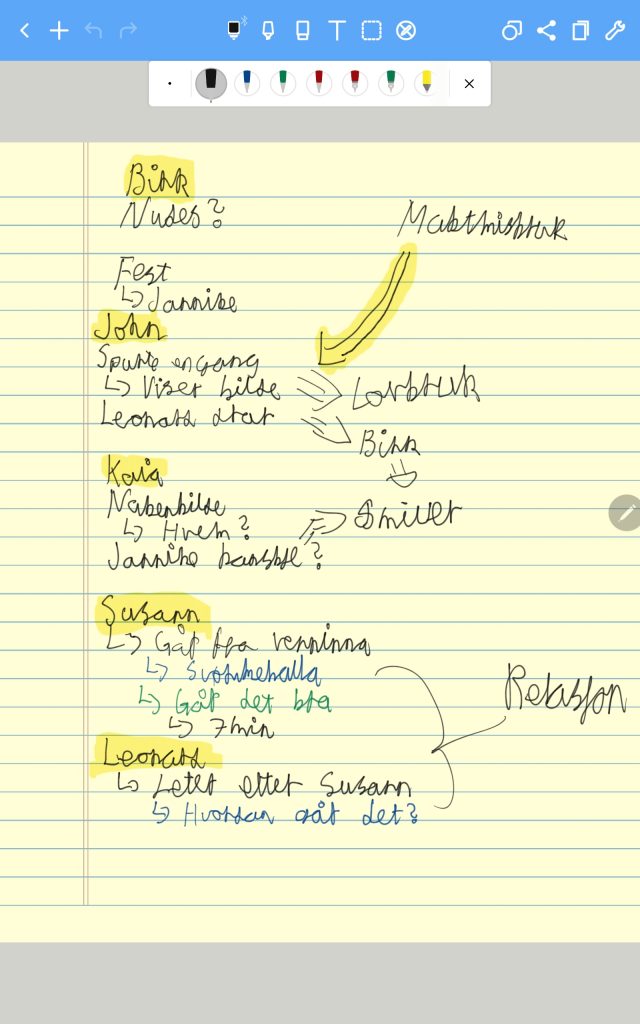 Birk
Nudes?
Maktmisbruk
Fest
↳ Jannike
John
Spurte engang
↳ Viser bilde
Lovbruk
Leonard drar
Birk
Kaia
Nakenbilde
↳ Hvem?
Smiller
Jannike kanskje?
Susann
↳ Går fra venninna
↳ Svømmehalla
↳ Går det bra
Relasjon
↳ 7min
Leonard
↳ Leter etter Susann
↳ Hvordan går det?